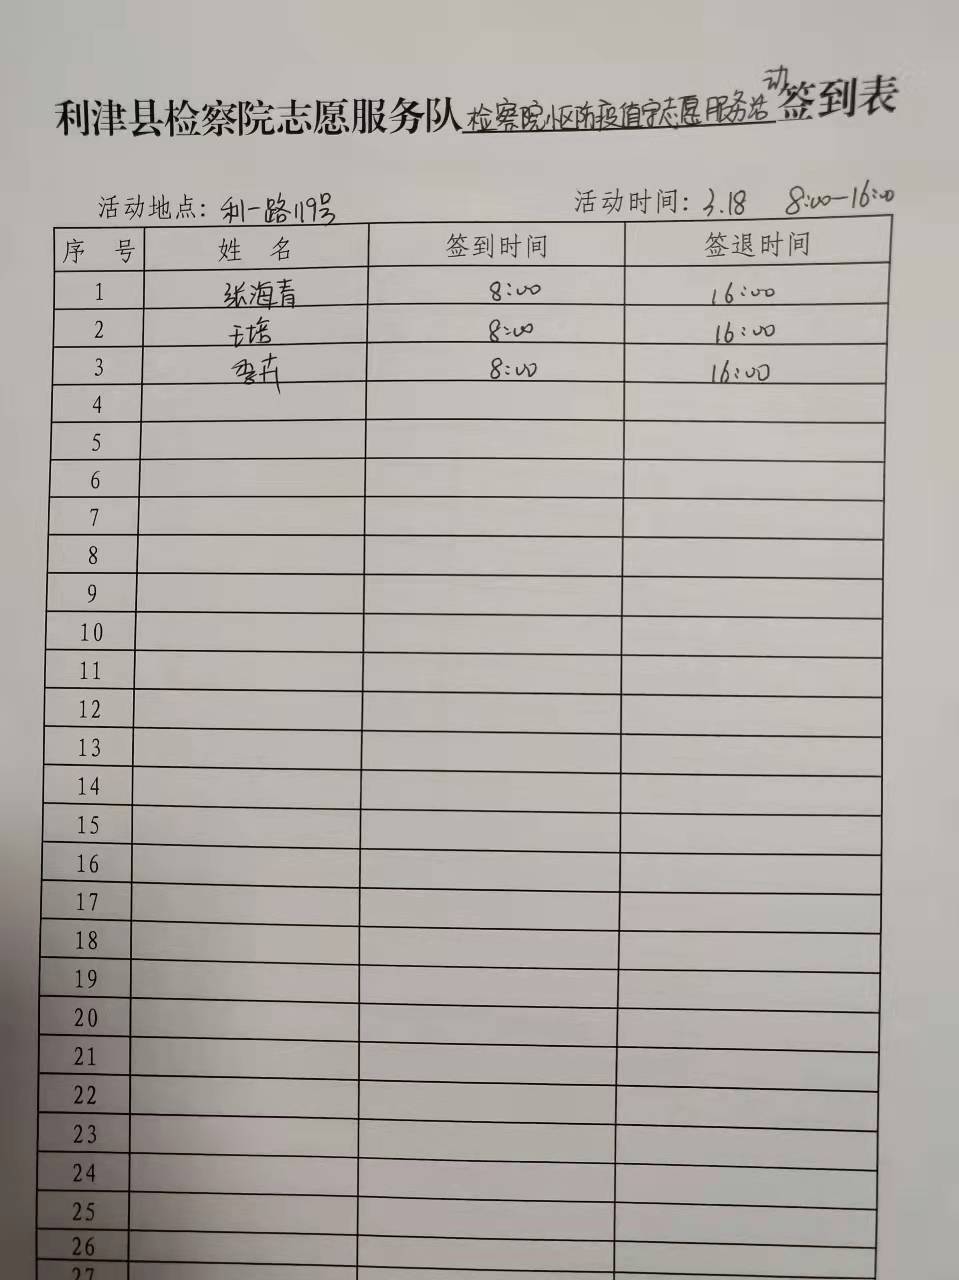 利津县检察院志愿服务队检察院小区防疫值守志愿服务活动签到表
活动地点：利一路119号 活动时间：3.18 8:00-16:00
序 号 姓 名 签到时间 签退时间
1 张海青 8:00 16:00
2 王培 8:00 16:00
3 李卉 8:00 16:00
4
5
6
7
8
9
10
11
12
13
14
15
16
17
18
19
20
21
22
23
24
25
26
27